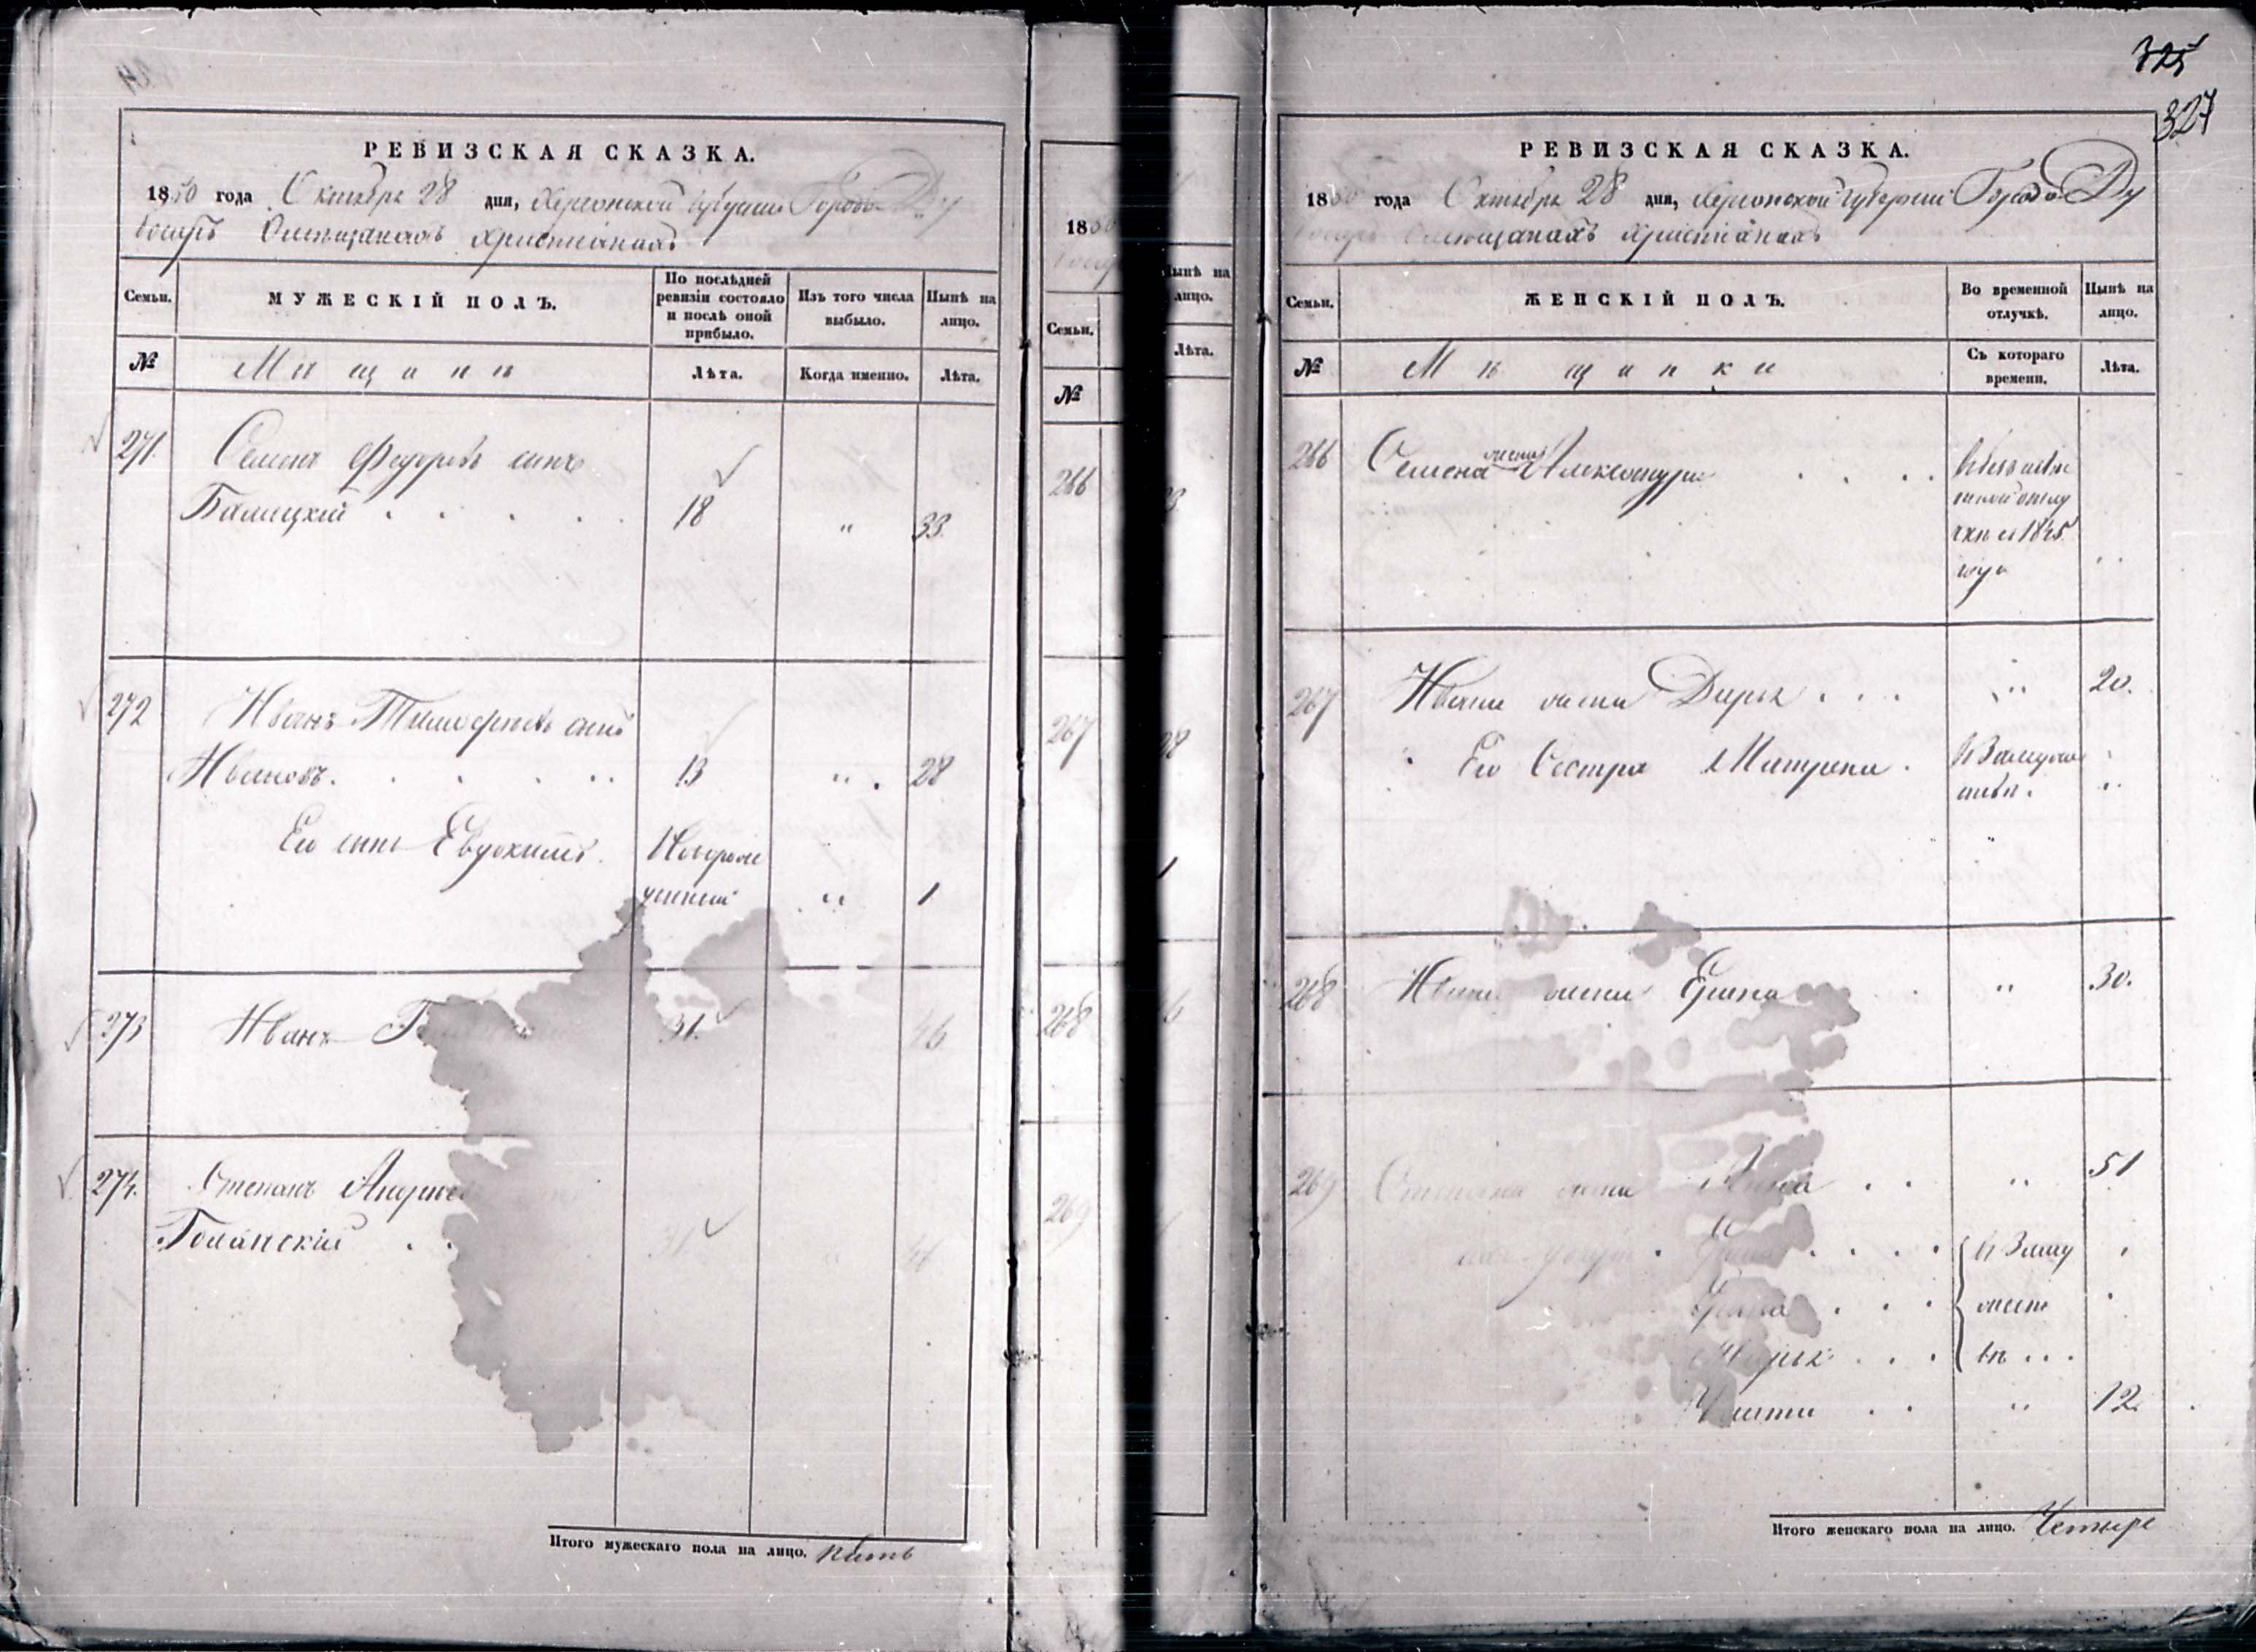 РЕВИЗСКАЯ СКАЗКА.
1850 года Октября 28 дня, Херсонской губернии Города Ду
босаръ О мещанахъ христіанахъ
Семьи. МУЖЕСКІЙ ПОЛЪ. По послѣдней ревизіи состояло и послѣ оной прибыло. Изъ того числа выбыло. Нынѣ на лицо.
№ Мѣщане Лѣта. Когда именно. Лѣта.
271. Семенъ Федоровъ сынъ
Балицкій 18 " 33.
272 Иванъ Тимофѣевъ сынъ
Ивановъ. 13 " 28
Его сынъ Евдокимъ. Новорож
денный " 1
273 Иванъ 31. 46
274. Степанъ Андреев
Гоманскій 31
Итого мужескаго пола на лицо. пять
1850
Семьи.
№
266
267
268
269
Нынѣ на лицо.
Лѣта.
325
327
РЕВИЗСКАЯ СКАЗКА.
1850 года Октября 28 дня, Херсонской губерніи Города Ду
босаръ О мещанахъ христіанахъ
Семьи. ЖЕНСКІЙ ПОЛЪ. Во временной отлучкѣ. Нынѣ на лицо.
№ Мѣщанки Съ котораго времени. Лѣта.
266 Семена жена Александра въ безызвѣ
стной отлу
чкѣ съ 1845
года
267 Ивана жена Дарья " 20.
Его Сестра Матрена. въ Замуже
ствѣ.
268 Ивана жена " 30.
269 Степана жена Анна " 51
въ Заму
жест
вѣ
Марья
" 12.
Итого женскаго пола на лицо. Четыре